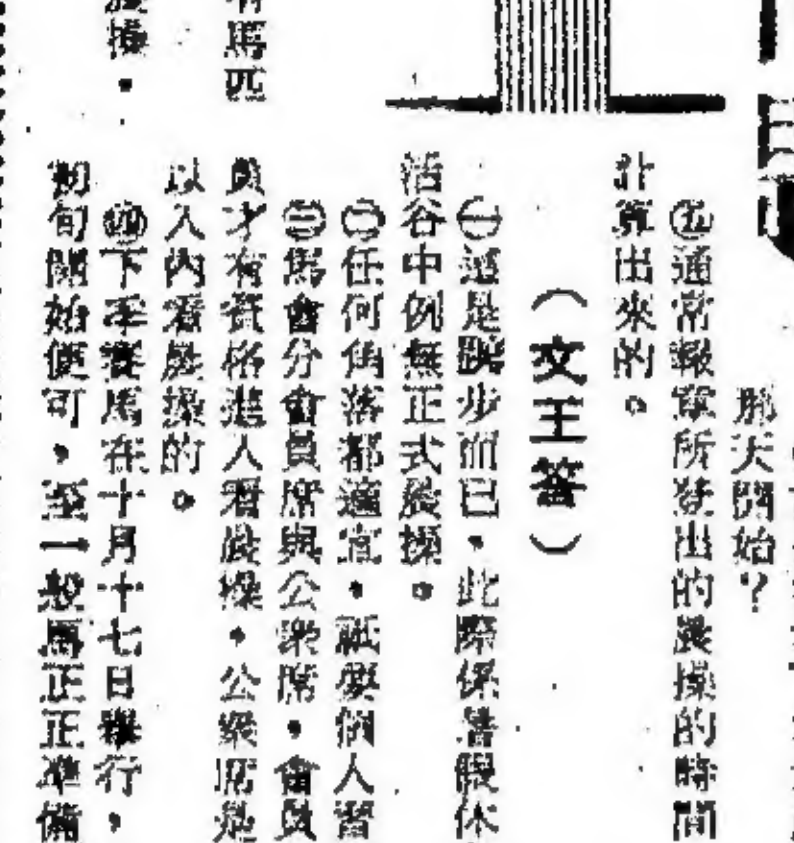 那天開始？
㊄通常報章所登出的晨操的時間
計算出來的。
（文王答）
㊀這是踱步而已，此際係暑假休
活谷中例無正式晨操。
㊁任何角落都適宜，祗要個人習
㊂馬會分會員席與公衆席，會員
員才有資格進入看晨操，公衆席是
以入內看晨操的。
㊃下季賽馬在十月十七日舉行，
初旬開始便可，至一般馬正正準備
有馬匹
晨操，